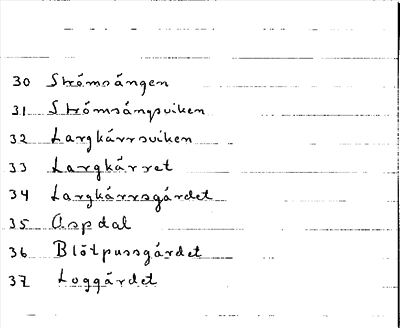 30 Strömsängen
31 Strömsängsviken
32 Largkärrsviken
33 Largkärret
34 Largkärrsgärdet
35 Aspdal
36 Blötpussgärdet
37 Loggärdet